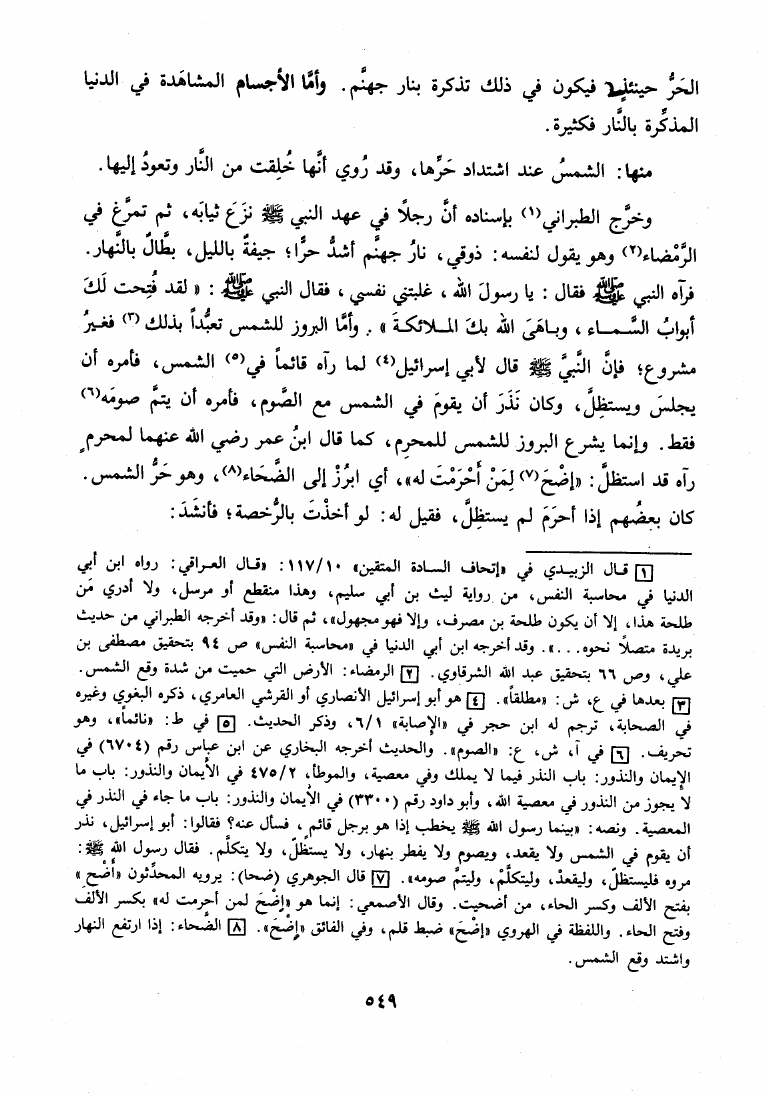 الحَرُّ حينئذٍ فيكون في ذلك تذكرة بنار جهنَّم. وأمَّا الأجسام المشاهَدة في الدنيا
المذكِّرة بالنَّار فكثيرة.
منها: الشمسُ عند اشتداد حَرِّها، وقد رُوي أنَّها خُلِقت من النَّار وتعودُ إليها.
وخرَّج الطبراني(١) بإسناده أنَّ رجلاً في عهد النبي ﷺ نَزَعَ ثيابَه، ثم تمرَّغ في
الرَّمْضاء(٢) وهو يقول لنفسه: ذوقي، نارُ جهنَّم أشدُّ حرًّا؛ جيفةٌ بالليل، بطَّالٌ بالنَّهار.
فرآه النبي ﷺ فقال : يا رسولَ الله ، غلبتني نفسي ، فقال النبي ﷺ : « لقد فُتِحت لَكَ
أبوابُ السَّمـاء ، وبـاهَى الله بكَ المـلائكـةَ » . وأمَّا البروز للشمس تعبُّداً بذلك (٣) فغيرُ
مشروع؛ فإنَّ النَّبيَّ ﷺ قال لأبي إسرائيل(٤) لما رآه قائماً في(٥) الشمس، فأمره أن
يجلسَ ويستظِلَّ، وكان نَذَرَ أن يقومَ في الشمس مع الصَّوم، فأمره أن يتمَّ صومَه(٦)
فقط. وإنما يشرع البروز للشمس للمحرم، كما قال ابنُ عمر رضي الله عنهما لمحرمٍ
رآه قد استظلَّ: «إضْحَ(٧) لِمَنْ أَحْرَمْتَ له»، أي ابرُزْ إلى الضَّحَاء(٨)، وهو حَرُّ الشمس.
كان بعضُهم إذا أحرَمَ لم يستظِلَّ، فقيل له: لو أخذْتَ بالرُّخصة؛ فأنشَدَ:
١ قـال الزبيـدي في «إتحاف السـادة المتقين» ١١٧/١٠: «قـال العـراقي: رواه ابن أبي
الدنيا في محاسبة النفس، من رواية ليث بن أبي سليم، وهذا منقطع أو مرسل، ولا أدري مَن
طلحة هذا، إلا أن يكون طلحة بن مصرف، وإلا فهو مجهول»، ثم قال: «وقد أخرجه الطبراني من حديث
بريدة متصلاً نحوه...». وقد أخرجه ابن أبي الدنيا في «محاسبة النفس» ص ٩٤ بتحقيق مصطفى بن
علي، وص ٦٦ بتحقيق عبد الله الشرقاوي. ٢ الرمضاء: الأرض التي حميت من شدة وقع الشمس.
٣ بعدها في ع، ش: «مطلقاً». ٤ هو أبو إسرائيل الأنصاري أو القرشي العامري، ذكره البغوي وغيره
في الصحابة، ترجم له ابن حجر في «الإصابة» ٦/١، وذكر الحديث. ٥ في ط: «نائماً»، وهو
تحريف. ٦ في آ، ش، ع: «الصوم». والحديث أخرجه البخاري عن ابن عباس رقم (٦٧٠٤) في
الإيمان والنذور: باب النذر فيما لا يملك وفي معصية، والموطأ، ٤٧٥/٢ في الأيمان والنذور: باب ما
لا يجوز من النذور في معصية الله، وأبو داود رقم (٣٣٠٠) في الأيمان والنذور: باب ما جاء في النذر في
المعصية. ونصه: «بينما رسول الله ﷺ يخطب إذا هو برجل قائم ، فسأل عنه؟ فقالوا: أبو إسرائيل، نذر
أن يقوم في الشمس ولا يقعد، ويصوم ولا يفطر بنهار، ولا يستظلّ، ولا يتكلَّم. فقال رسول الله ﷺ:
مروه فليستظلّ، وليقعدْ، وليتكلَّمْ، وليتمَّ صومه». ٧ قال الجوهري (ضحا): يرويه المحدِّثون «أَضْحِ »
بفتح الألف وكسر الحاء، من أضحيت. وقال الأصمعي: إنما هو «إضْحَ لمن أحرمت له» بكسر الألف
وفتح الحاء. واللفظة في الهروي «إضْحَ» ضبط قلم، وفي الفائق «إضْحَ». ٨ الضَّحاء: إذا ارتفع النهار
واشتد وقع الشمس.
٥٤٩